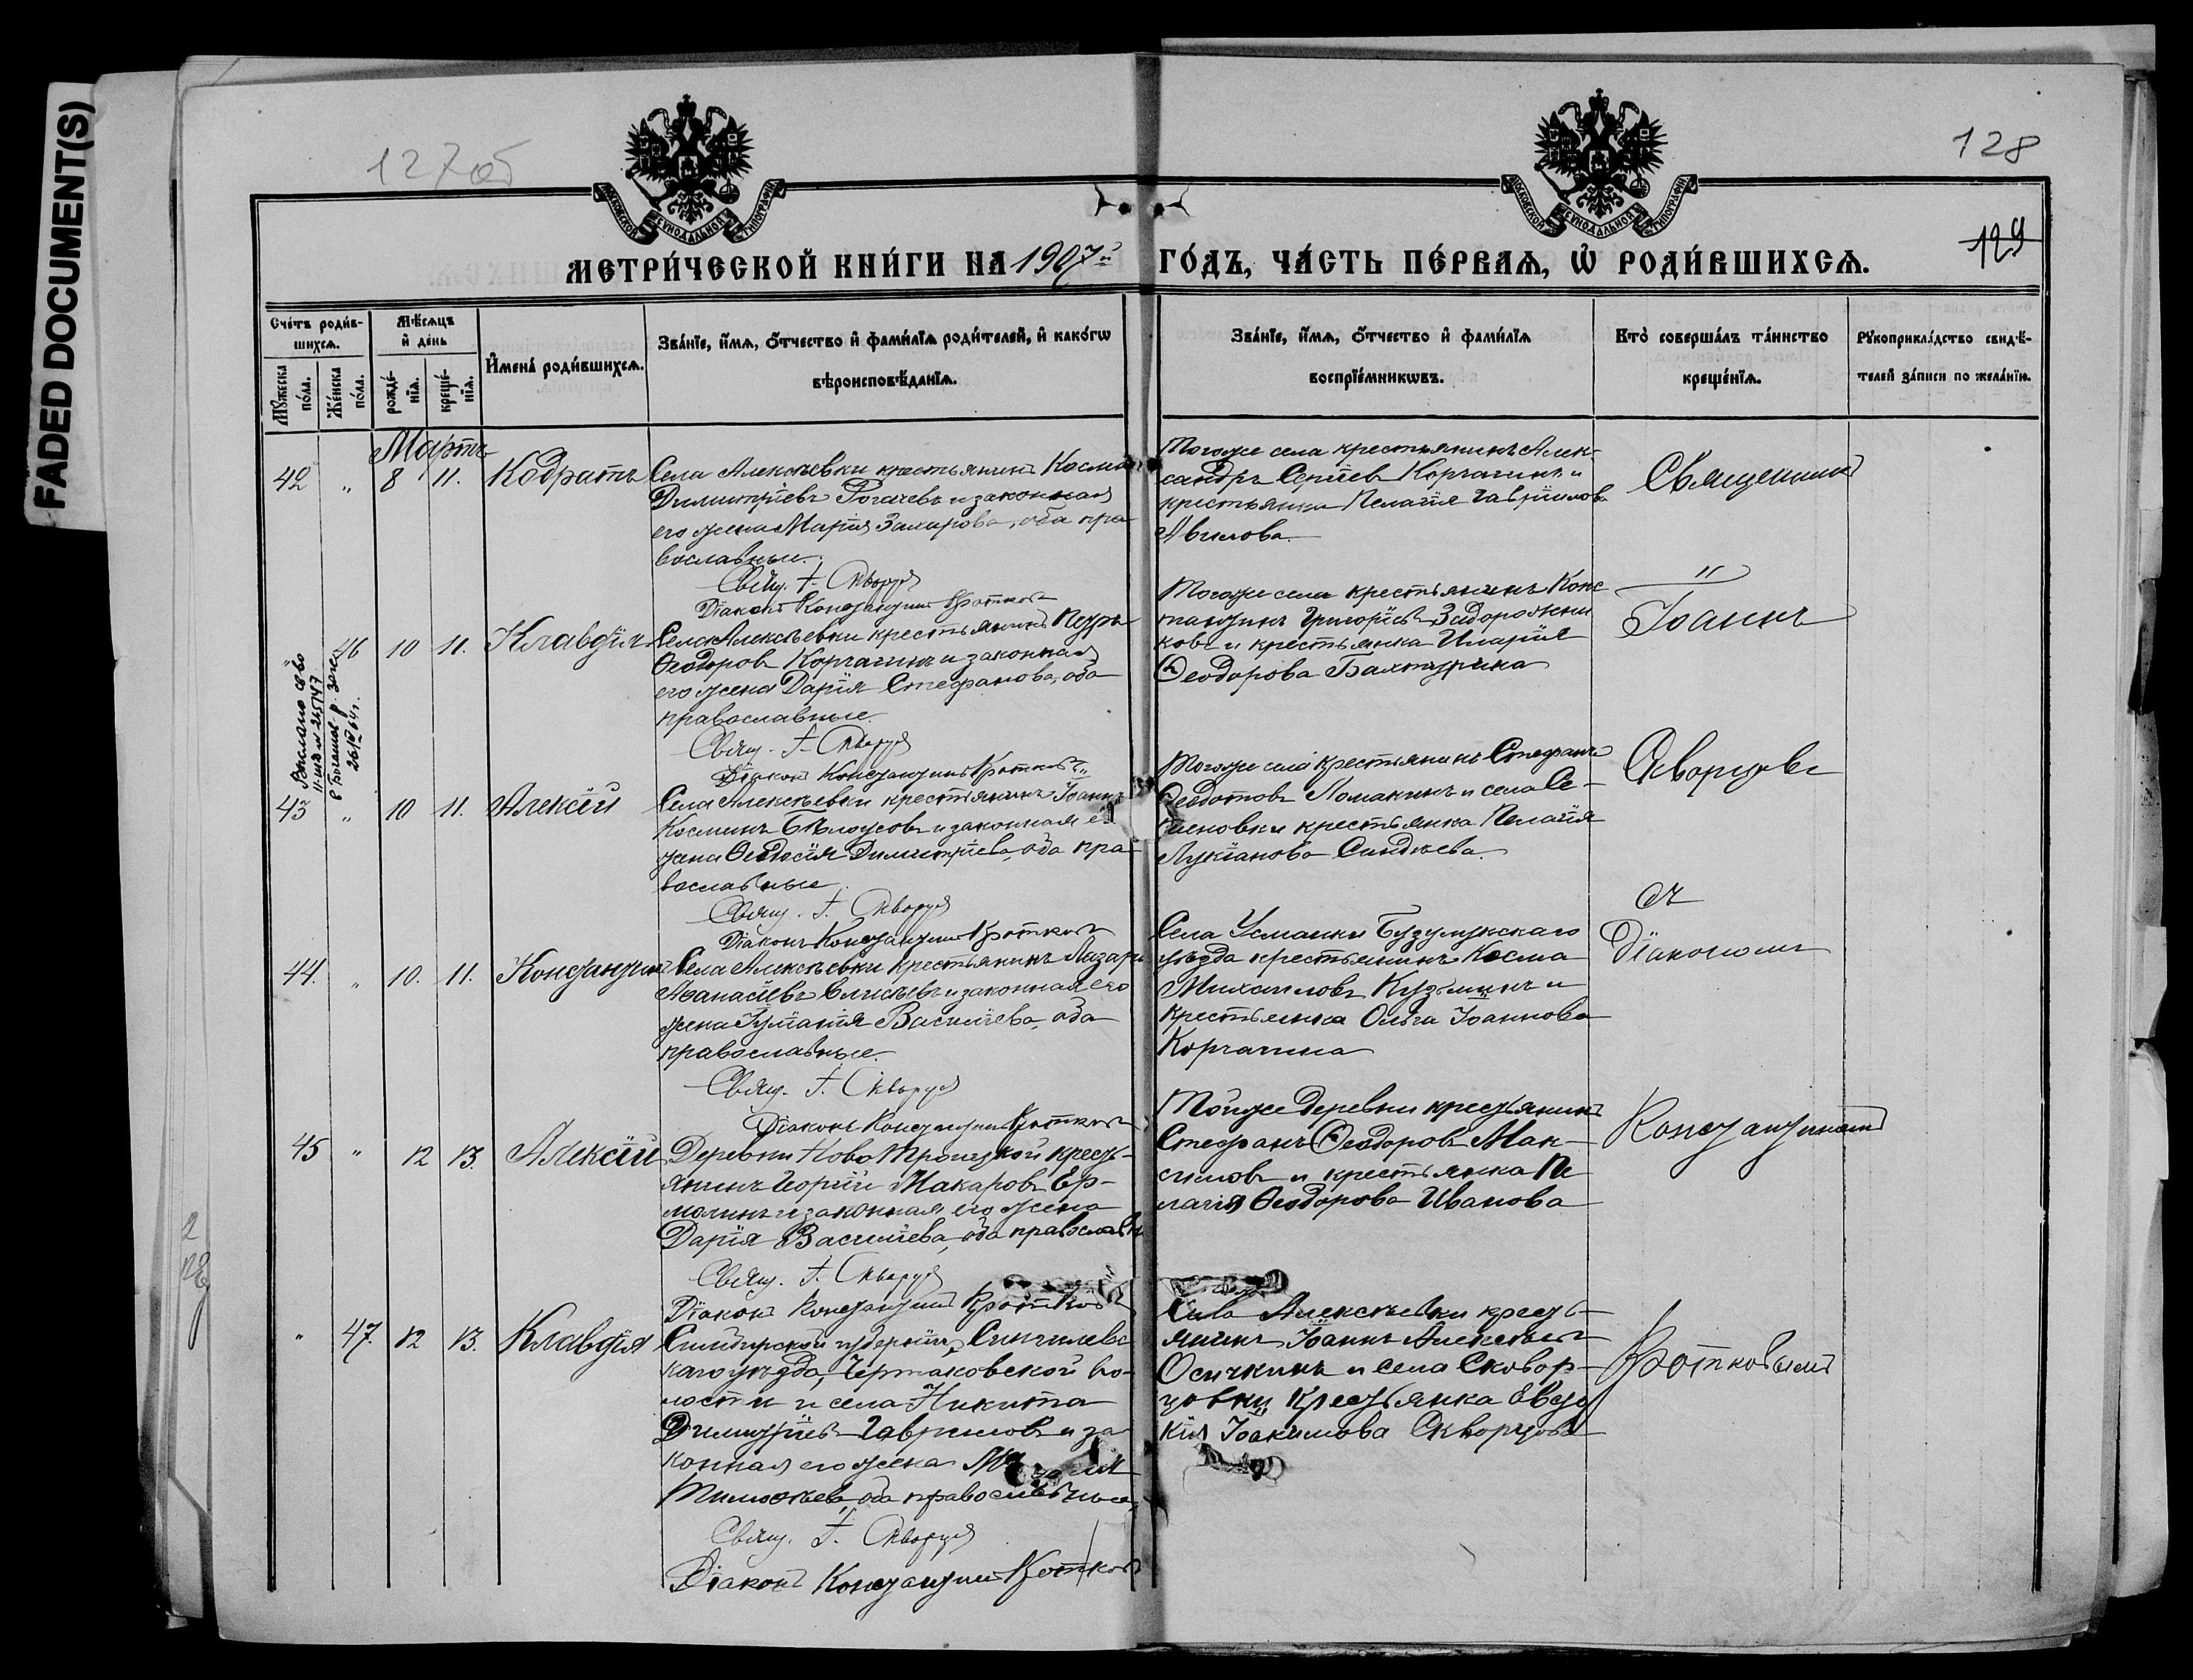 FADED DOCUMENT(S)
127об
128
129
МОСКОВСКОЙ СѴНОДАЛЬНОЙ ТИПОГРАФІИ
МОСКОВСКОЙ СѴНОДАЛЬНОЙ ТИПОГРАФІИ
МЕТРИ́ЧЕСКОЙ КНИ́ГИ НА 1907й ГО́ДЪ, ЧА́СТЬ ПЕ́РВАѦ, Ѡ҆ РОДИ́ВШИХСѦ.
Сче́тъ роди́в-
шихсѧ.
Мꙋ́жеска
по́ла.
Же́нска
по́ла.
Мѣ́сѧцъ
и҆ де́нь
рожде́-
нїѧ.
креще́-
нїѧ.
И҆мена̀ роди́вшихсѧ.
Зва́нїе, и҆́мѧ, ѻ҆́тчество и҆ фами́лїѧ роди́телей, и҆ како́гѡ
вѣроисповѣ́данїѧ.
Зва́нїе, и҆́мѧ, ѻ҆́тчество и҆ фами́лїѧ
воспрїе́мникѡвъ.
Кто̀ соверша́лъ та́инство
креще́нїѧ.
Рꙋкоприкла́дство свидѣ́-
телей за́писи по жела́нїю.
Мартъ
42 " 8 11. Кодратъ
Села Алексѣевки крестьянинъ Косма
Димитріевъ Рогачевъ и законная
его жена Марія Захарова, оба пра-
вославные.
Свящ. І. Скворцов
Діаконъ Константинъ Кротковъ
Тогоже села крестьянинъ Алек-
сандръ Сергіевъ Корчагинъ и
крестьянка Пелагія Гавріилова
Авилова.
46 10 11. Клавдія
Села Алексѣевки крестьянинъ Петръ
Ѳеодоровъ Корчагинъ и законная
его жена Дарія Стефанова, оба
православные.
Свящ. І. Скворцов
Діаконъ Константинъ Кротковъ
Тогоже села крестьянинъ Конс
тантинъ Григоріевъ Задорожни
ковъ и крестьянка Иларія
Ѳеодорова Бахтурина
Выслано св во
26/IV 64 г.
43 " 10 11. Алексій
Села Алексѣевки крестьянинъ Іоаннъ
Косминъ Бѣлоусовъ и законная его
жена Ѳеодосія Димитріева, оба пра-
вославные.
Свящ. І. Скворцов
Діаконъ Константинъ Кротковъ
Тогоже села крестьянинъ Стефанъ
Ѳеодотовъ Ломакинъ и села Се-
меновки крестьянка Пелагія
Лукіанова Синдяева.
44. " 10. 11. Константинъ
Села Алексѣевки крестьянинъ Лазарь
Аѳанасіевъ Елисѣевъ и законная его
жена Іуліанія Васильева, оба
православные.
Свящ. І. Скворцов
Діаконъ Константинъ Кротковъ
Села Усманки Бузулукскаго
уѣзда крестьянинъ Косма
Михаиловъ Кузьминъ и
крестьянка Ольга Іоаннова
Корчагина
45 " 12 13. Алексій
Деревни Ново Троицкой кресть-
янинъ Георгій Макаровъ Ер-
молинъ и законная его жена
Дарія Васильева, оба православн
Свящ. І. Скворцов
Діаконъ Константинъ Кротковъ
Тойже деревни крестьянинъ
Стефанъ Ѳеодоровъ Мак-
симовъ и крестьянка Пе
лагія Ѳеодорова Иванова
" 47. 12 13. Клавдія
Симбирской губерніи, Сингилевс
каго уѣзда, Чертаковской во-
лости и села Никита
Димитріевъ Гавриловъ и за
конная его жена
Тимоѳеева, оба православные,
Свящ. І. Скворцов
Діаконъ Константинъ Кротковъ
Села Алексѣевки кресть-
янинъ Іоаннъ Алексѣевъ
Осичкинъ и села Сквор-
цовки крестьянка Евдо
кія Іоакимова Скворцова
Священникъ
"
Іоаннъ
Скворцовъ
съ
Діакономъ
Константиномъ
Кротковымъ